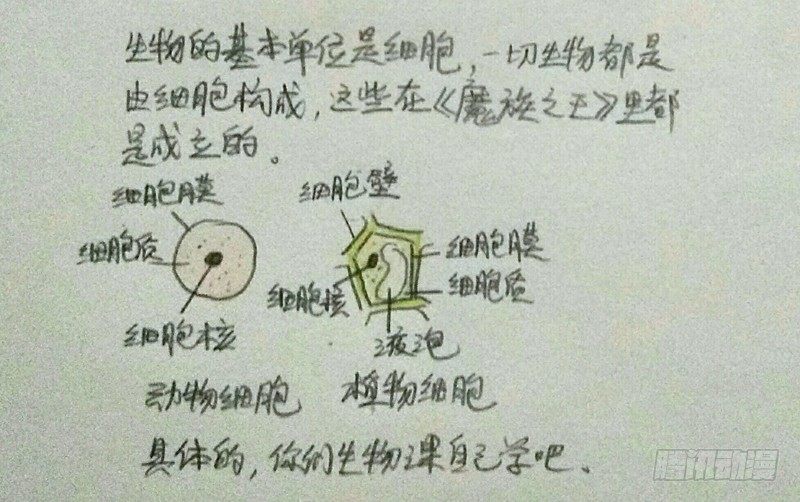 生物的基本单位是细胞,一切生物都是
由细胞构成,这些在《魔族之王》里都
是成立的。
细胞膜
细胞质
细胞核
动物细胞
细胞壁
细胞膜
细胞质
细胞核
液泡
植物细胞
具体的,你们生物课自己学吧、
腾讯动漫